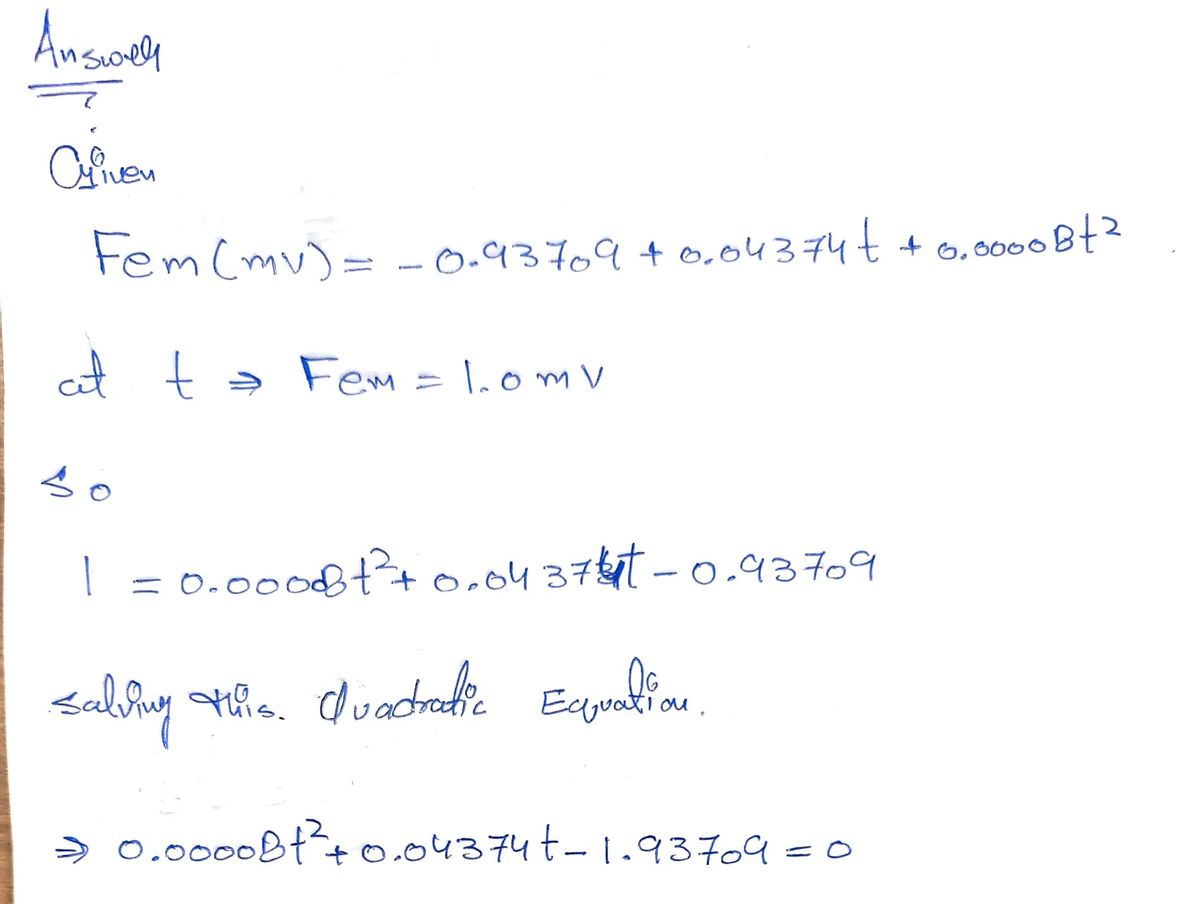 Answer
Given
Fem(mv) = -0.93709 + 0.04374t + 0.00008t²
at t ⇒ Fem = 1.0 mv
So
1 = 0.00008t² + 0.04374t - 0.93709
salving this. Quadratic Equation.
⇒ 0.00008t² + 0.04374t - 1.93709 = 0